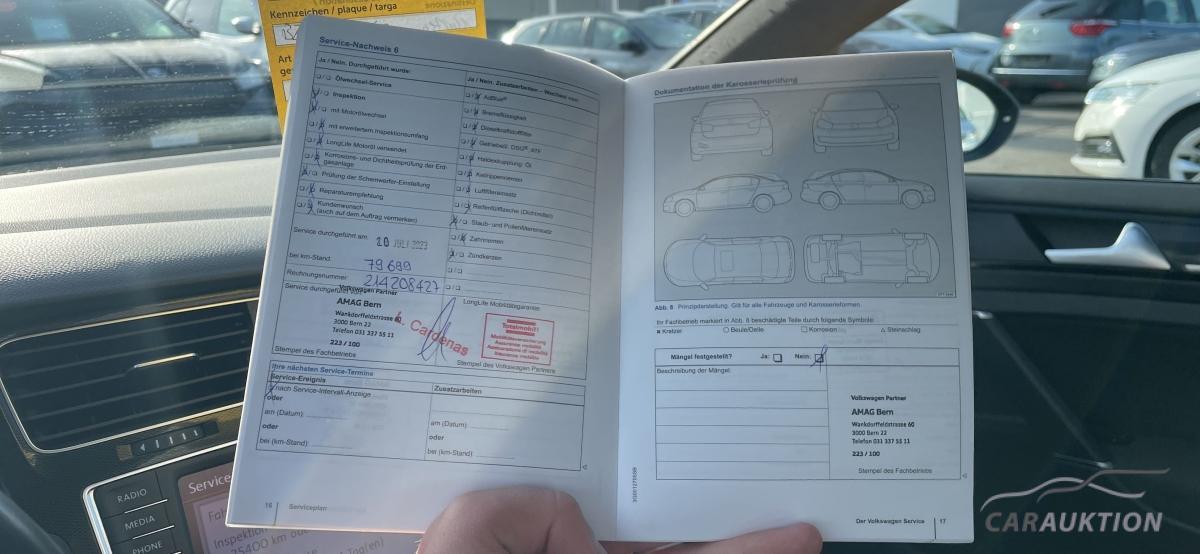 Kennzeichen / plaque / targa
Art
Service-Nachweis 6
Ja / Nein. Durchgeführt wurde:
Ölwechsel-Service
Inspektion
mit Motorölwechsel
mit erweitertem Inspektionsumfang
LongLife Motoröl verwendet
Korrosions- und Dichtheitsprüfung der Erd-
gasanlage
Prüfung der Scheinwerfer-Einstellung
Reparaturempfehlung
Kundenwunsch
(auch auf dem Auftrag vermerken)
Service durchgeführt am:
bei km-Stand: 79 699
Rechnungsnummer: 214208427
Service durchgeführt
Volkswagen Partner
AMAG Bern
Wankdorffeldstrasse 60
3000 Bern 22
Telefon 031 337 55 11
223 / 100
Stempel des Fachbetriebs
Cardenas
Ja / Nein. Zusatzarbeiten
AdBlue®
Bremsflüssigkeit
Dieselkraftstofffilter
Haldexkupplung: Öl
Keilrippenriemen
Luftfiltereinsatz
Reifenfüllflasche (Dichtmittel)
Staub- und Pollenfiltereinsatz
Zahnriemen
Zündkerzen
LongLife Mobilitätsgarantie
Totalmobil!
Mobilitätsversicherung
Assurance mobilité
Assicurazione di mobilità
Insurance mobility
Stempel des Volkswagen Partners
Ihre nächsten Service-Termine
Service-Ereignis
nach Service-Intervall-Anzeige
oder
am (Datum):
oder
bei (km-Stand):
Zusatzarbeiten
am (Datum):
oder
bei (km-Stand):
16 Serviceplan
Dokumentation der Karosserieprüfung
Abb. 8 Prinzipdarstellung: Gilt für alle Fahrzeuge und Karosserieformen.
Ihr Fachbetrieb markiert in Abb. 8 beschädigte Teile durch folgende Symbole:
Kratzer Beule/Delle Korrosion Steinschlag
Mängel festgestellt? Ja: Nein:
Beschreibung der Mängel:
Volkswagen Partner
AMAG Bern
Wankdorffeldstrasse 60
3000 Bern 22
Telefon 031 337 55 11
223 / 100
Stempel des Fachbetriebs
Der Volkswagen Service 17
RADIO
MEDIA
PHONE
Service
CARAUKTION